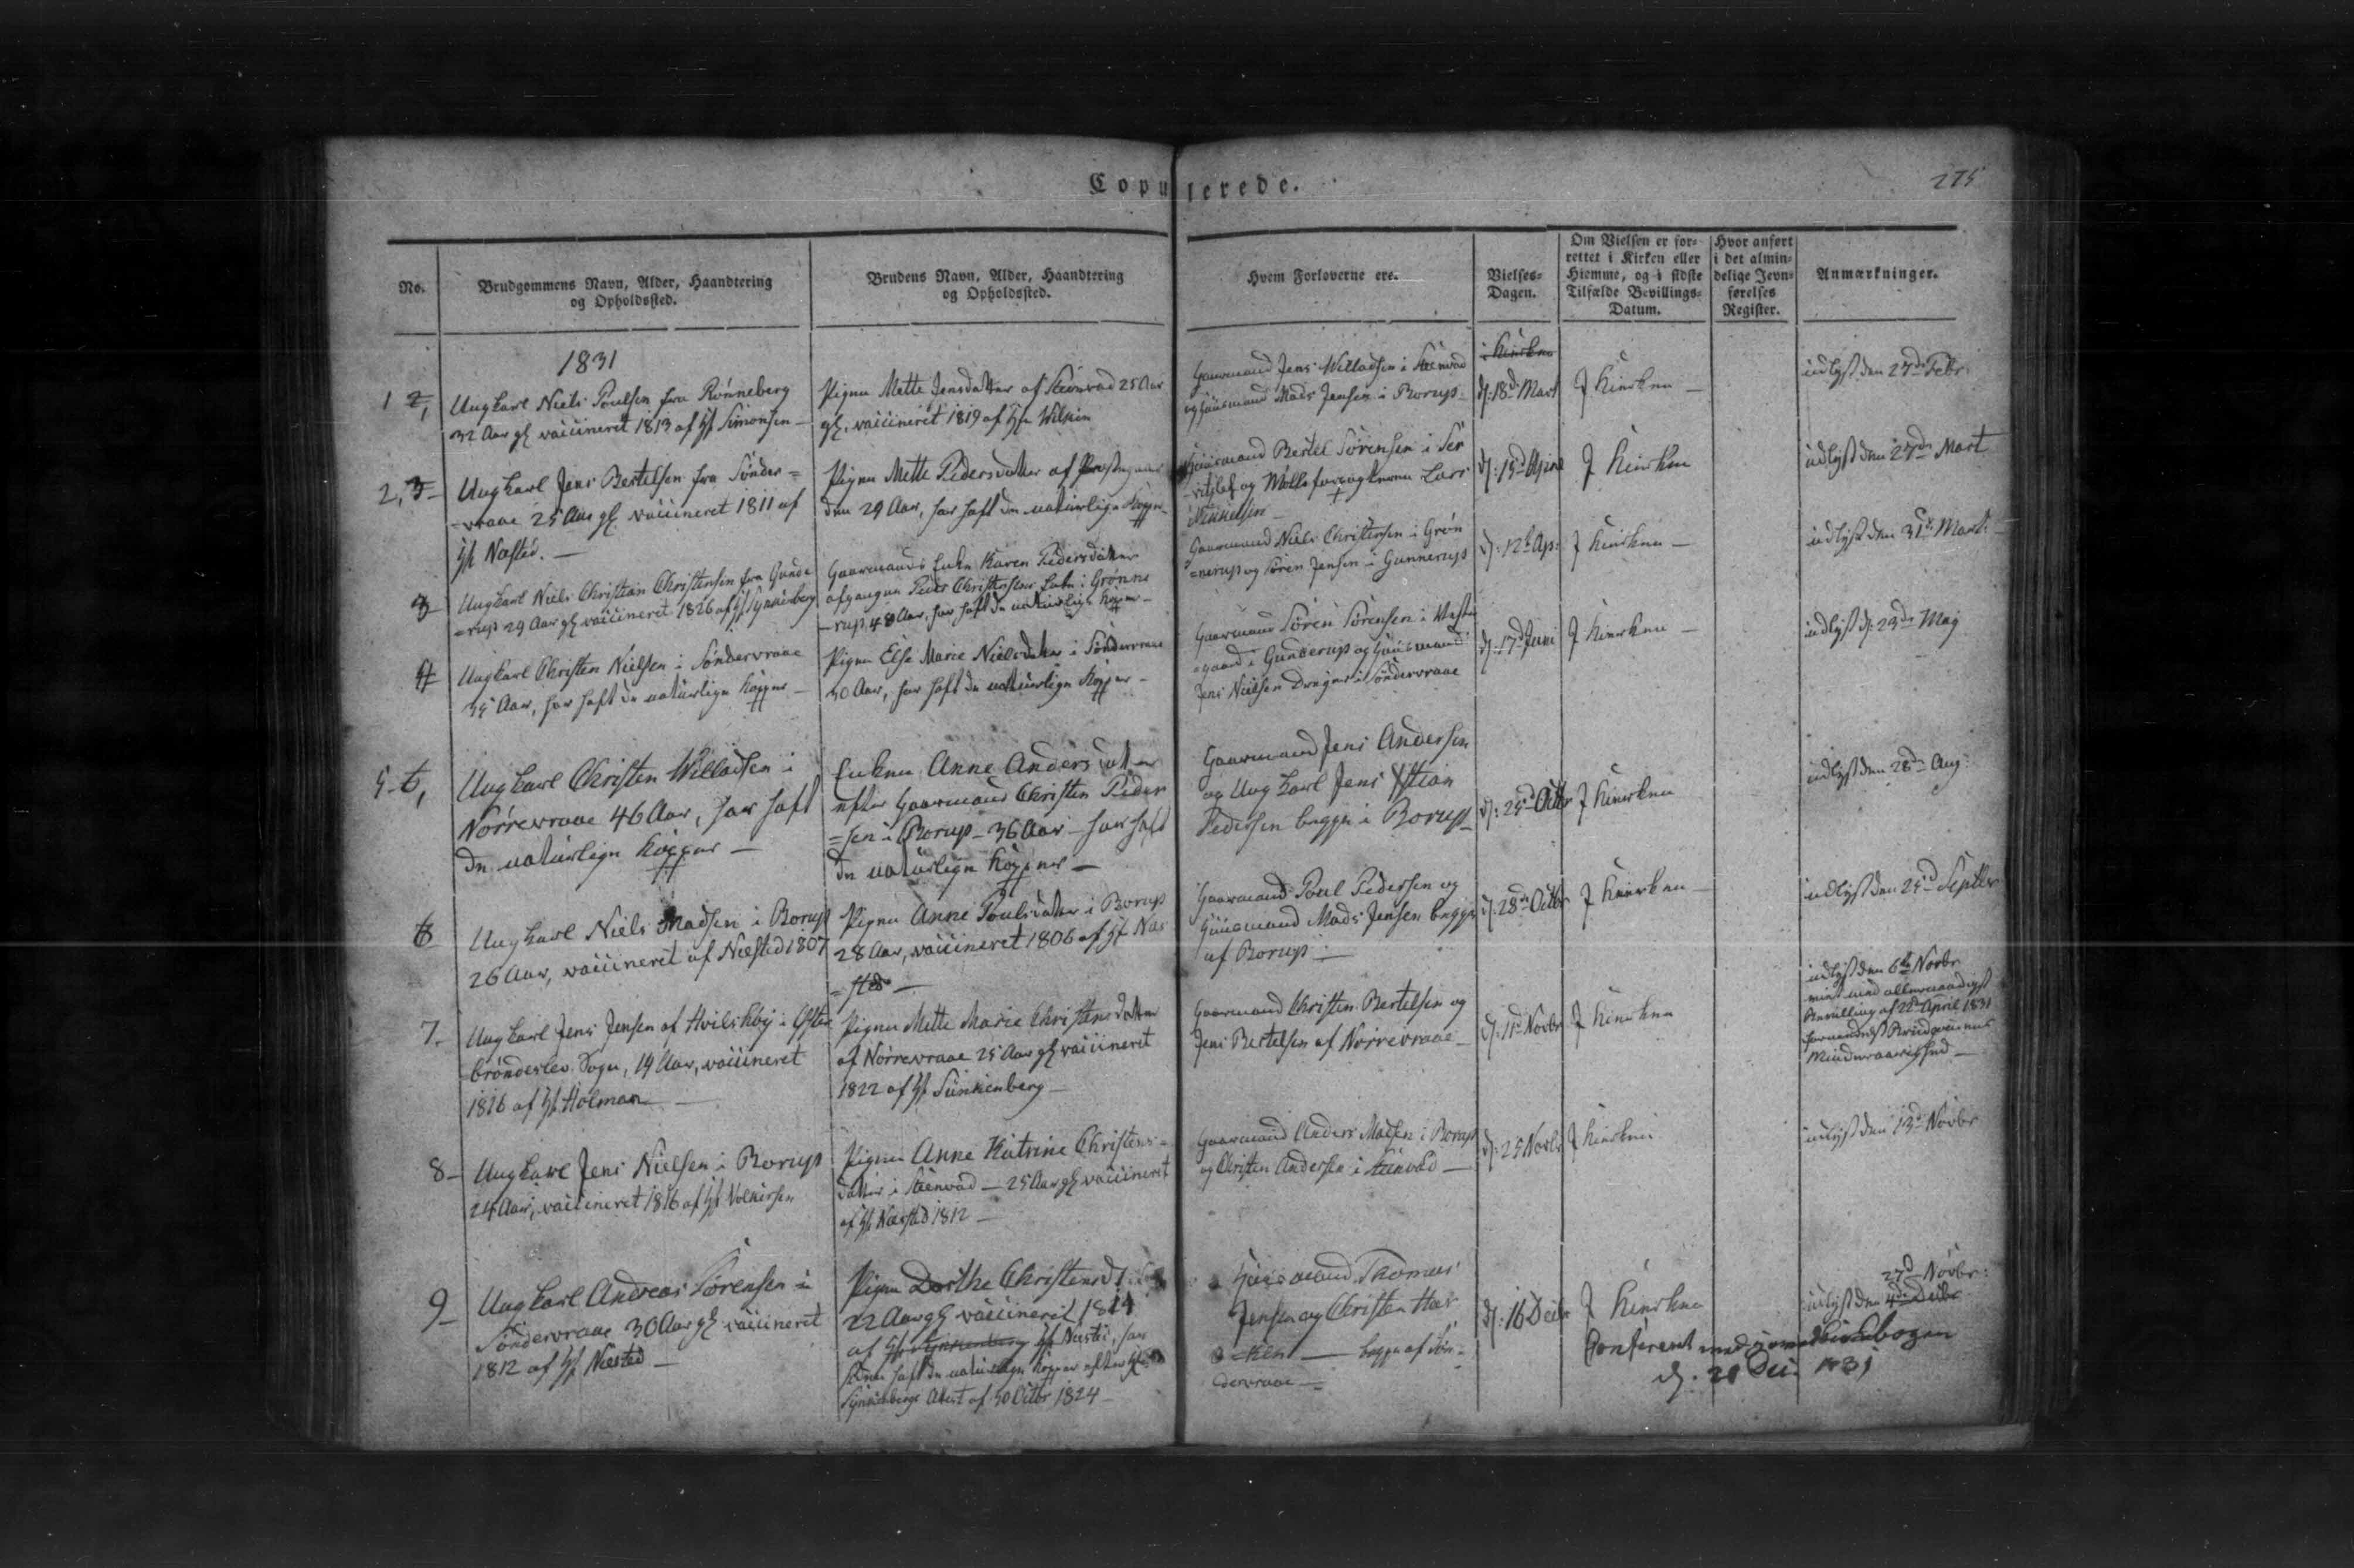 Copulerede.
275
No.
Brudgommens Navn, Alder, Haandtering
og Opholdssted.
Brudens Navn, Alder, Haandtering
og Opholdssted.
Hvem Forloverne ere.
Vielses-
Dagen.
Om Vielsen er for-
rettet i Kirken eller
Hiemme, og i sidste
Tilfælde Bevillings-
Datum.
Hvor anført
i det almin-
delige Jevn-
førelses
Register.
Anmærkninger.
1831
1
Ungkarl Niels Poulsen fra Rønneberg
32 Aar gl vaccineret 1813 af Hr Simonsen
Pigen Mette Jensdatter af Steenvad 25 Aar
gl. vaccineret 1819 af Hr
Gaarmand Jens Willadsen i Steenvad
og Huusmand Mads Jensen i Borup
i Kirken
d: 18de Mart
I Kirken
udlyst den 27de Febr
2,
Ungkarl Jens Bertelsen fra Sønder=
=vraae 25 Aar gl vaccineret 1811 af
Hr Næsted.
Pigen Mette Pedersdatter af Præstegaar
den 29 Aar, har haft de naturlige Kopper
Huusmand Bertel Sørensen i Ser
ritslef og Lars
Mikkelsen
d: 15de April
I Kirken
udlyst den 27de Mart
3
Ungkarl Niels Christian Christensen fra Gunde
=rup 29 Aar gl vaccineret 1826 af Hr Synnenberg
Gaarmands Enke Karen Pedersdatter
afgangne Peder Christensens Enke i Grønne
=rup 48 Aar, har haft de naturlige Kopper
Gaarmand Niels Christensen i Grøn
=nerup og Søren Jensen i Gunnerup
d: 12te Ap:
I Kirken
udlyst den 31te Mart:
4
Ungkarl Christen Nielsen i Søndervraae
35 Aar, har haft de naturlige Kopper
Pigen Else Marie Nielsdatter i Søndervraae
30 Aar, har haft de naturlige Kopper
Gaarmand Søren Sørensen i Vester
=gaard i Gunderup og Huusmand
Jens Nielsen Dreyer i Søndervraae
d: 17de Juni
I Kirken
udlyst d: 23de Maj
5
Ungkarl Christen Willadsen i
Nørrevraae 46 Aar, har haft
de naturlige Kopper
Enken Anne Andersdatter
efter Gaarmand Christen Peder
=sen i Borup 36 Aar har haft
de naturlige Kopper
Gaarmand Jens Andersen
og Ungkarl Jens Xstian
Pedersen begge i Borup
d: 25de Octbr
I Kirken
udlyst den 28de Aug:
6
Ungkarl Niels Madsen i Borup
26 Aar, vaccineret af Næsted 1807
Pigen Anne Poulsdatter i Borup
28 Aar, vaccineret 1806 af Hr Næs
=sted
Gaarmand Poul Pedersen og
Huusmand Mads Jensen begge
af Borup
d: 28de Octbr
I Kirken
udlyst den 25de Septbr
7.
Ungkarl Jens Jensen af Hvilshøj i Øster
brønderslev Sogn, 19 Aar, vaccineret
1816 af Hr Holman
Pigen Mette Marie Christensdatter
af Nørrevraae 25 Aar gl vaccineret
1822 af Hr Sünnenberg
Gaarmand Christen Bertelsen og
Jens Bertelsen af Nørrevraae
d: 11te Novbr
I Kirken
udlyst den 6te Novbr
viet med allernaadigst
Bevilling af 22de April 1831
formedelst Brudgommens
Mindreaarighed
8
Ungkarl Jens Nielsen i Borup
24 Aar, vaccineret 1816 af Hr Volkersen
Pigen Anne Katrine Christens=
datter i Steenvad 25 Aar gl vaccineret
af Hr Næsted 1812
Gaarmand Anders Madsen i Borup
og Christen Andersen i Steenvad
d: 25 Novbr
I Kirken
udlyst den 13de Novbr
9
Ungkarl Andreas Sørensen i
Søndervraae 30 Aar gl vaccineret
1812 af Hr Næsted
Pigen Dorthe Christensd
22 Aar gl vaccineret 1814
af Hr Synnenberg Hr Næsted, har
siden haft de naturlige Kopper efter Hr
Synnenbergs Attest af 30 Octbr 1824
Huusmand Thomas
Jensen og Christen Hav
=ken begge af Søn=
dervraae
d: 16 Decbr
I Kirken
27de Novbr:
udlyst den 4de Decbr
Confereret med
d: 21 Dec: 1831